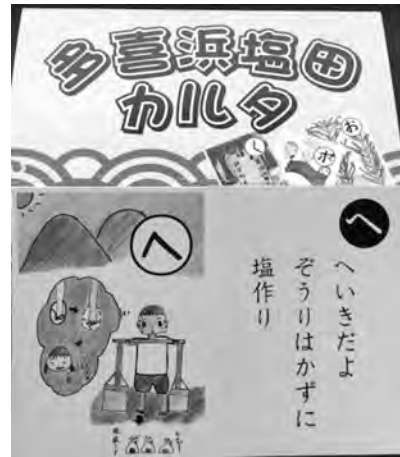 多喜浜塩田
カルタ
し
ホ
わ
へ
へ
へいきだよ
ぞうりはかずに
塩作り